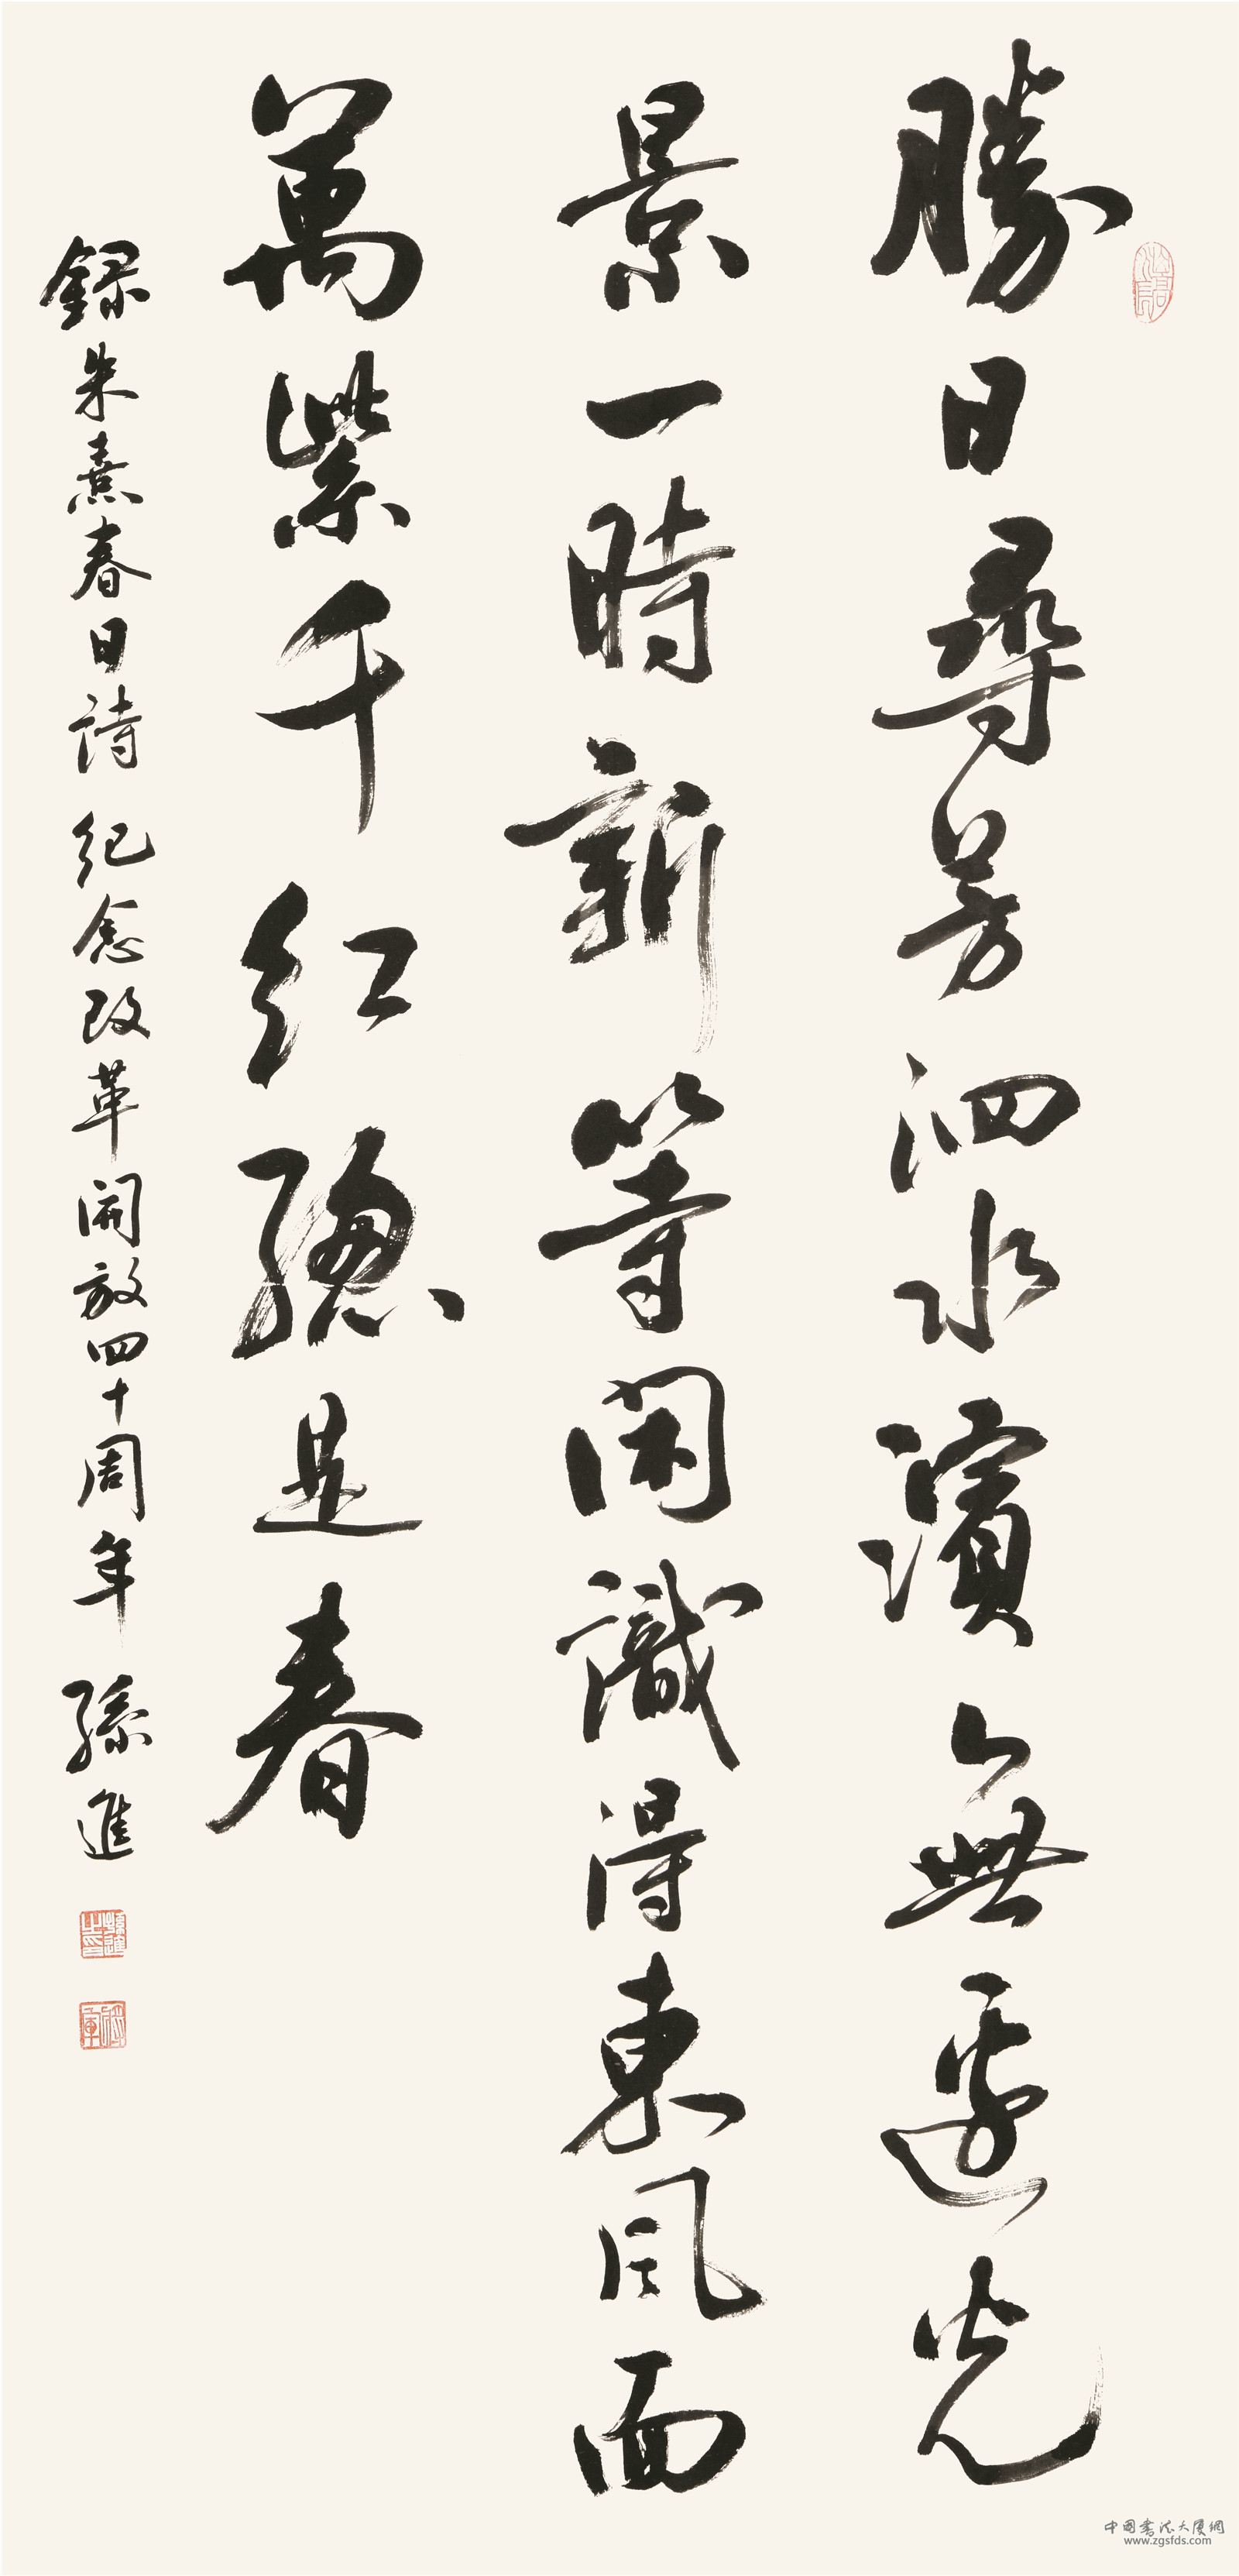 勝日尋芳泗水濱無邊光
景一時新等閑識得東風面
萬紫千红總是春
録朱熹春日詩 纪念改革開放四十周年 孫進
中國書法大厦網
www.zgsfds.com